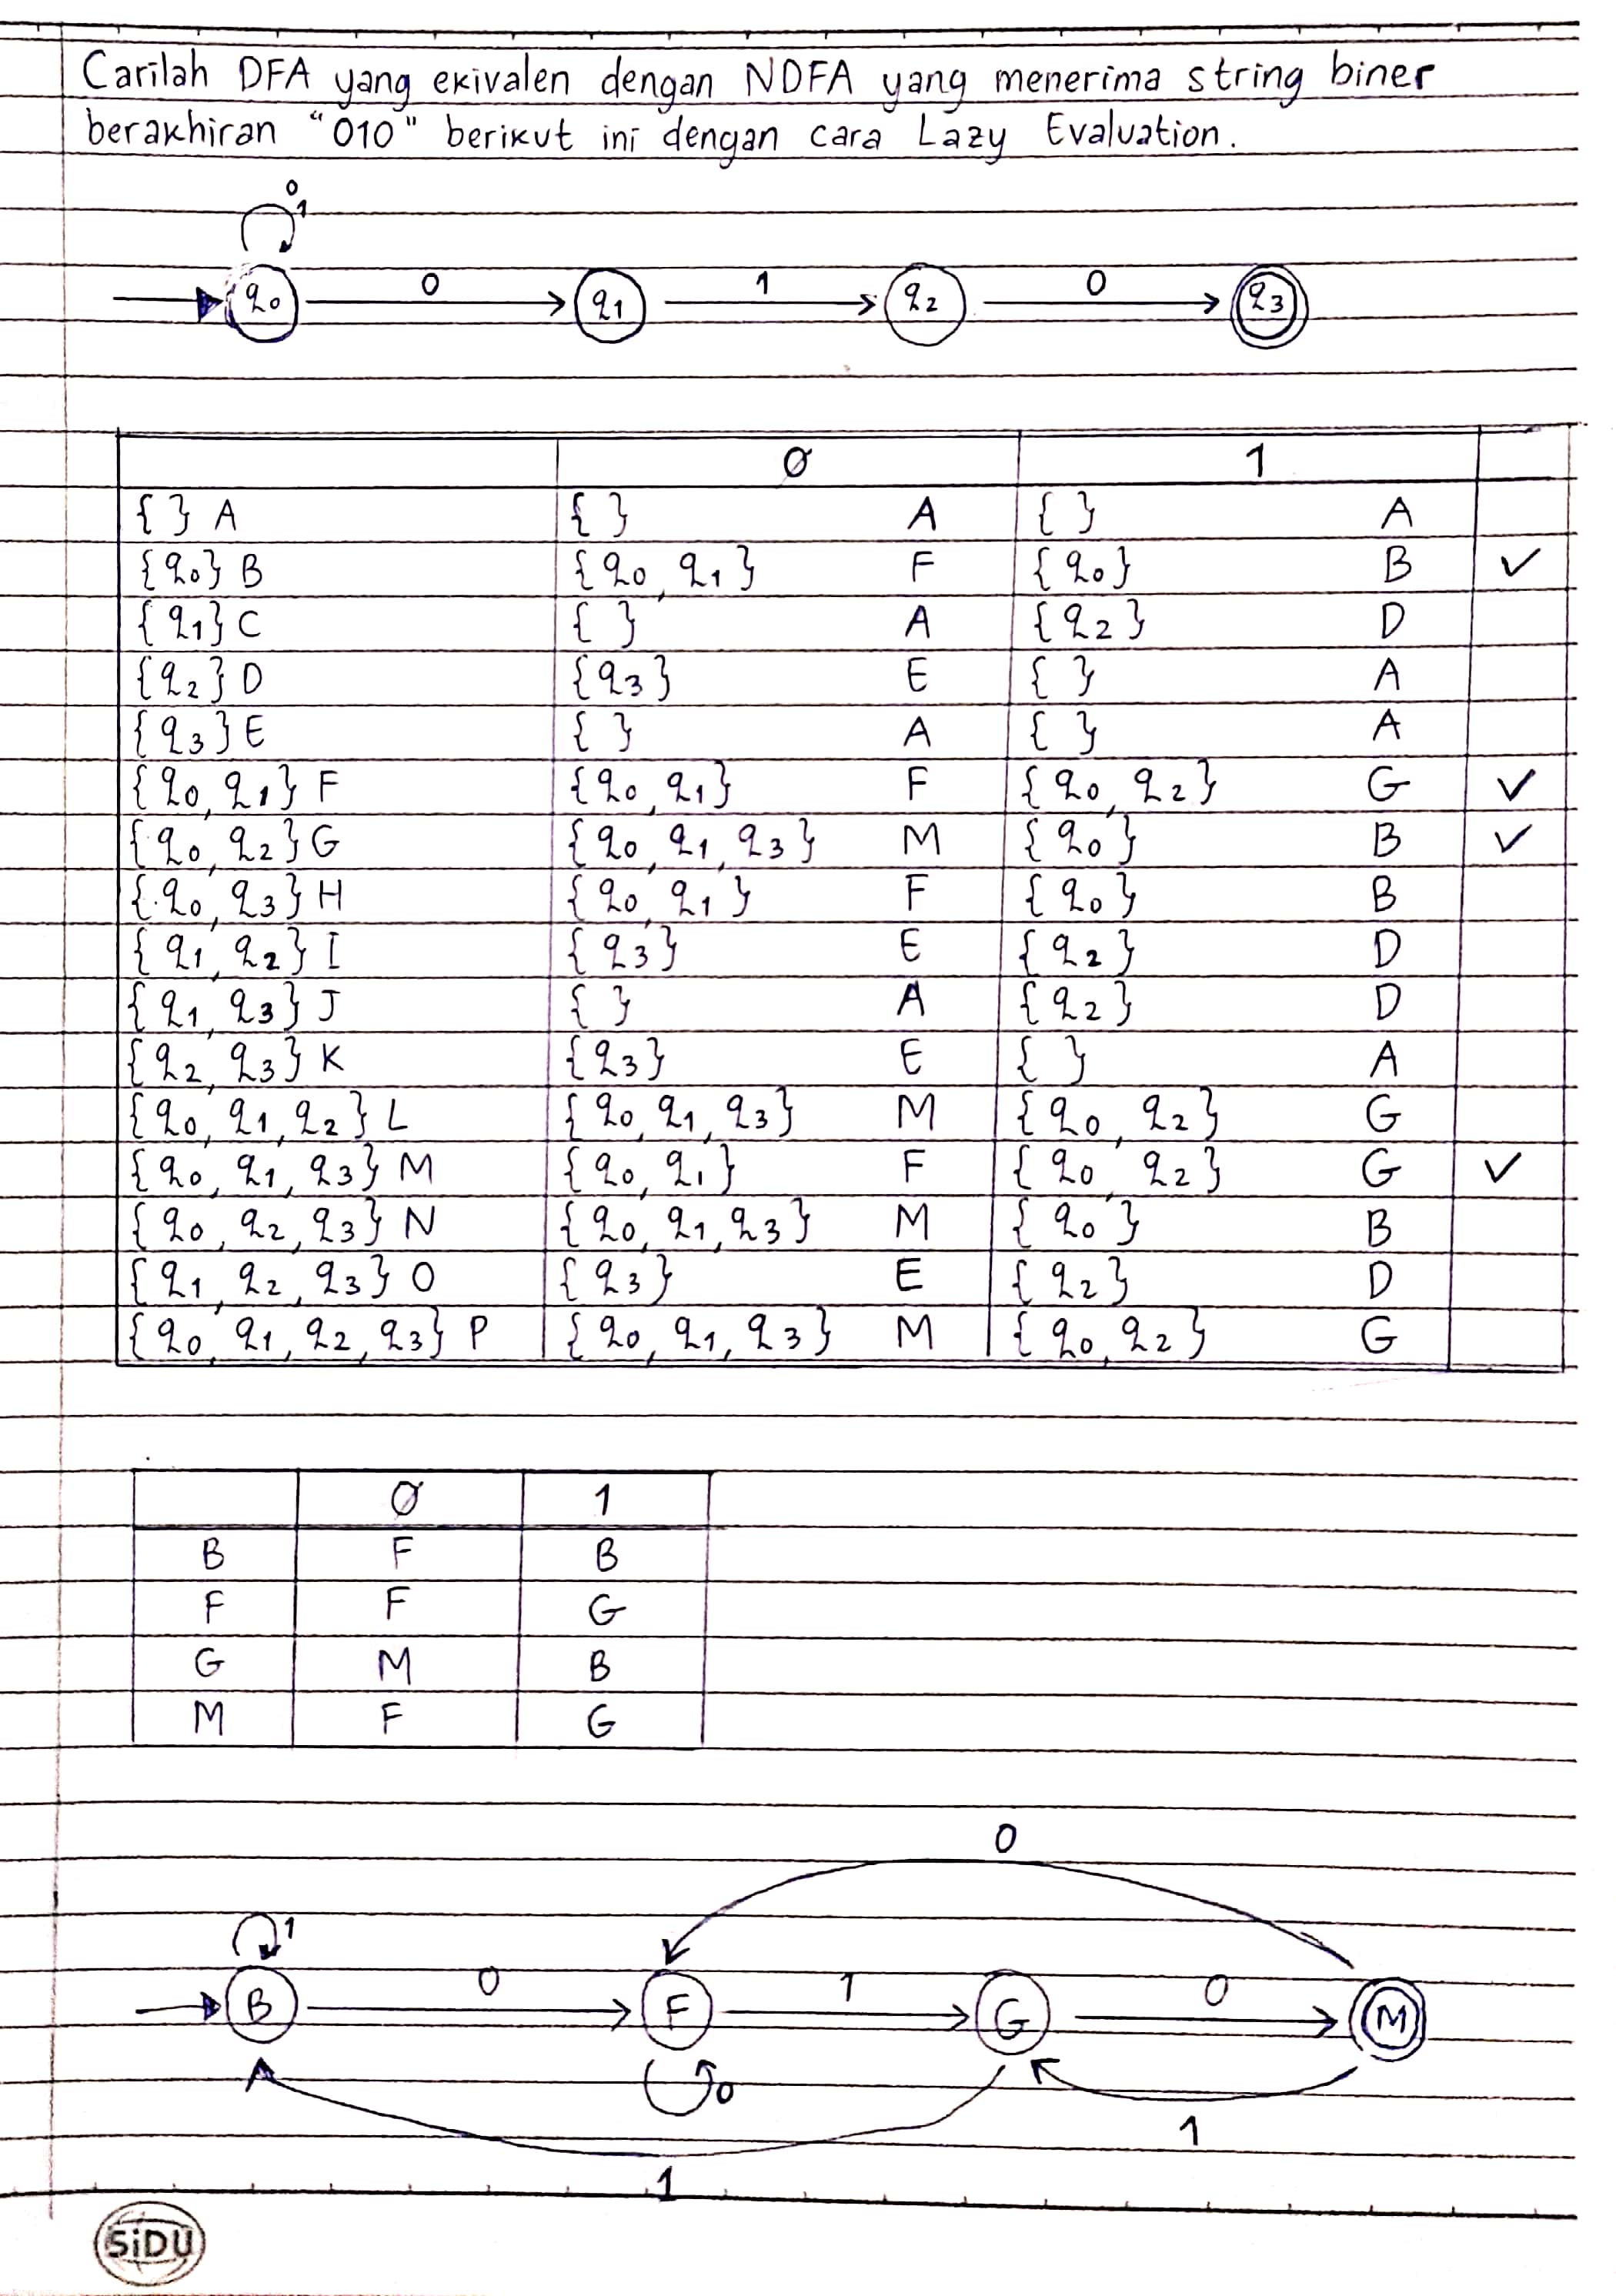 Carilah DFA yang ekivalen dengan NDFA yang menerima string biner
berakhiran "010" berikut ini dengan cara Lazy Evaluation.
0
1
q0 0 q1 1 q2 0 q3
0 1
{ } A { } A { } A
{q0} B {q0, q1} F {q0} B ✓
{q1} C { } A {q2} D
{q2} D {q3} E { } A
{q3} E { } A { } A
{q0, q1} F {q0, q1} F {q0, q2} G ✓
{q0, q2} G {q0, q1, q3} M {q0} B ✓
{q0, q3} H {q0, q1} F {q0} B
{q1, q2} I {q3} E {q2} D
{q1, q3} J { } A {q2} D
{q2, q3} K {q3} E { } A
{q0, q1, q2} L {q0, q1, q3} M {q0, q2} G
{q0, q1, q3} M {q0, q1} F {q0, q2} G ✓
{q0, q2, q3} N {q0, q1, q3} M {q0} B
{q1, q2, q3} O {q3} E {q2} D
{q0, q1, q2, q3} P {q0, q1, q3} M {q0, q2} G
0 1
B F B
F F G
G M B
M F G
0
1
B 0 F 1 G 0 M
0
1
1
SiDU